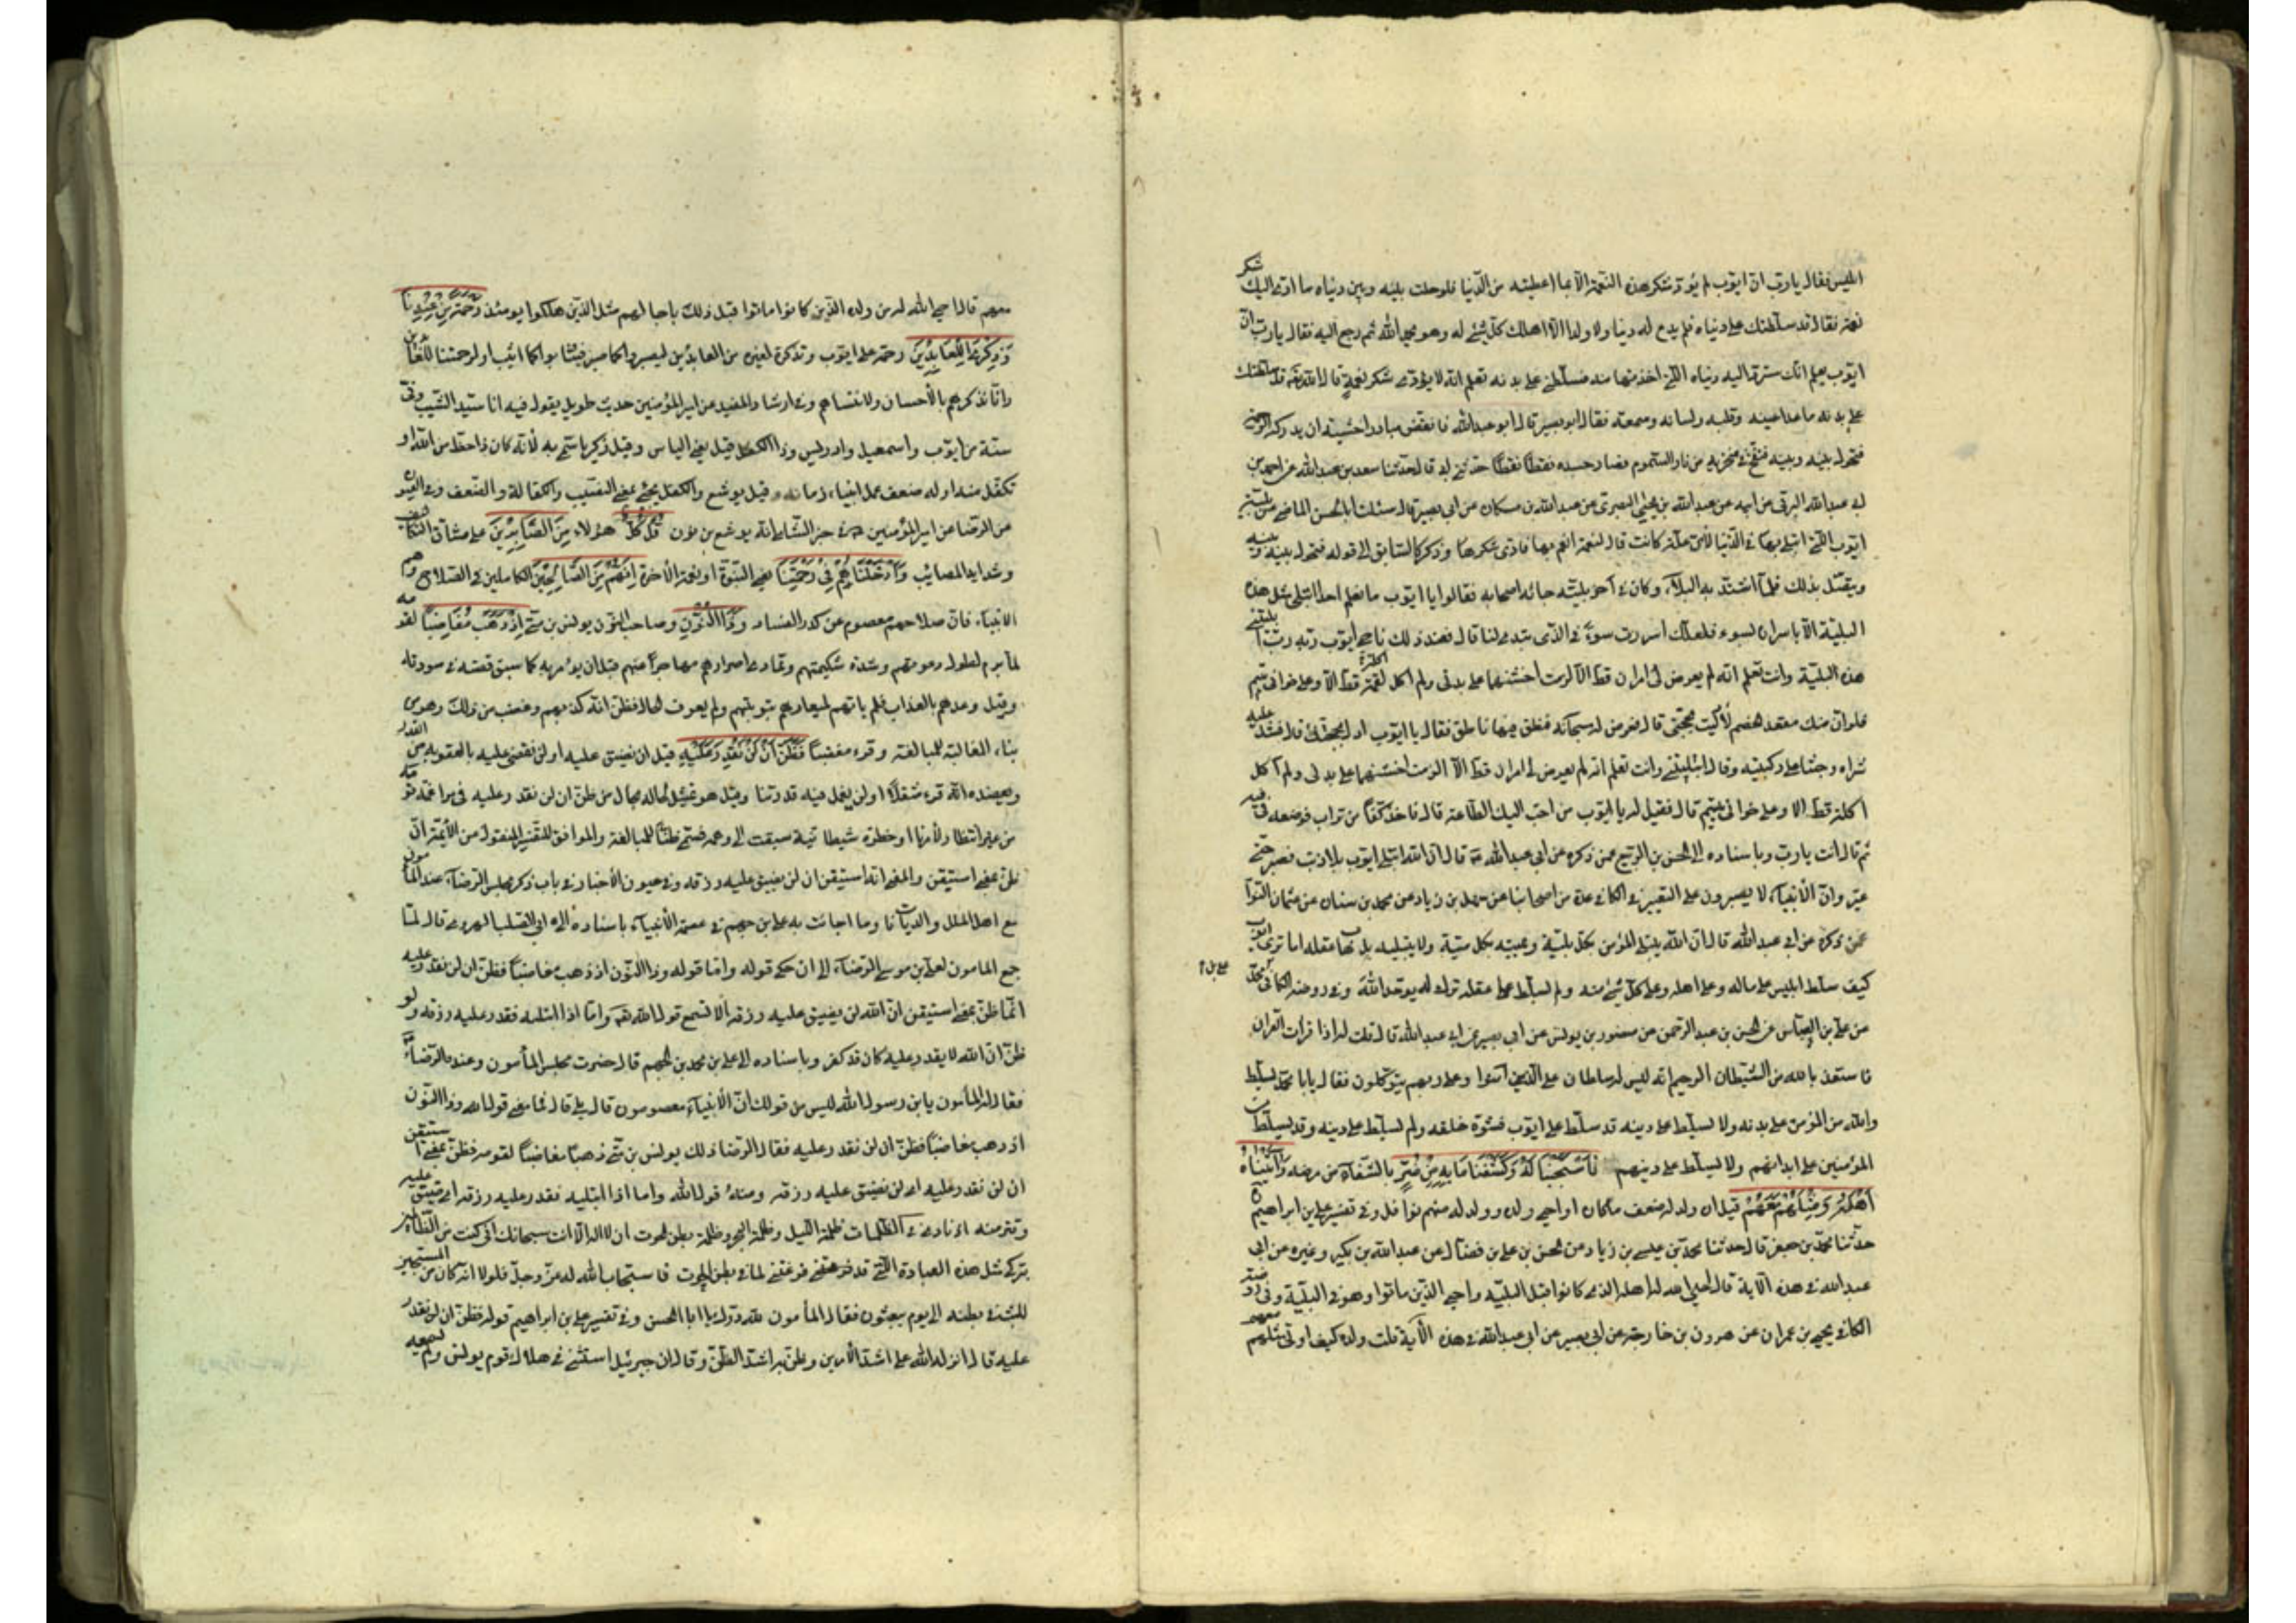 ابليس فقال يا رب ان ايوب لم يؤد شكر هذه النعمة الا بما اعطيته من الدنيا فلو حلت بينه وبين دنياه ما ادى اليك شكر
نعمة فقال قد سلطتك على دنياه فلم يدع له دنيا ولا ولدا الا اهلك كل شئ له وهو يحمد الله ثم رجع اليه فقال يا رب ان
ايوب يعلم انك سترد اليه دنياه التى اخذتها منه فسلطنى على بدنه تعلم انه لا يؤدى شكر نعمة قال الله قد سلطتك
على بدنه ما عدا عينه وقلبه ولسانه وسمعه فقال ابو بصير قال ابو عبدالله فانقض مبادرا خشية ان يدركه الرحمة
فتحول بينه وبينه فنفخ فى منخريه من نار السموم فصار جسده نقطا نقطا حدثنى ابى قال حدثنا سعد بن عبدالله عن احمد بن
ابى عبدالله البرقى عن ابيه عن عبدالله بن يحيى البصرى عن عبدالله بن مسكان عن ابى بصير قال سئلت ابا الحسن الماضى عن بلية
ايوب التى ابتلى بها فى الدنيا لاى علة كانت قال لنعمة انعم بها فادى شكرها وذكر كالسابق الى قوله فتحول بينه وبينه
ويقتل بذلك فلما اشتد به البلاء وكان فى آخر بليته جائه اصحابه فقالوا يا ايوب ما نعلم احدا ابتلى بمثل هذه
البلية الا باسران لسوء فلعلك اسررت سوءً فى الذى تبدى لنا قال فعند ذلك ناجى ايوب ربه رب ابليتنى
هذه البلية وانت تعلم انه لم يعرض لى امران قط الا لزمت اخشنهما على بدنى ولم آكل اكلة قط الا وعلى خوانى يتيم
فلو ان منك مقعد لخصم لادليت بحجتى قال فعرض له سحابة فنطق فيها ناطق فقال يا ايوب ادل بحجتك قال فشد عليه
شراه وجثا على ركبتيه وقال ابتليتنى وانت تعلم انه لم يعرض لى امران قط الا الزمت اخشنهما على بدنى ولم آكل
اكلة قط الا وعلى خوانى يتيم قال فقيل له يا ايوب من احب اليك الطاعة قال فاخذ كفا من تراب فوضعه فى فيه
ثم قال انت يا رب وباسناده الى الحسن بن الربيع عمن ذكره عن ابى عبدالله قال ان الله ابتلى ايوب بلا ذنب فصبر حتى
عير وان الانبياء لا يصبرون على التعيير فى الكافى عدة من اصحابنا عن سهل بن زياد عن محمد بن سنان عن عثمان النوا
عمن ذكره عن ابى عبدالله قال ان الله يبتلى المؤمن بكل بلية ويميته بكل ميتة ولا يبتليه بذهاب عقله اما ترى ايوب
كيف سلط ابليس على ماله وعلى اهله وعلى كل شئ منه ولم يسلط على عقله ترك له يوحد الله وفى روضة الكافى محمد
عن على بن العباس عن الحسن بن عبد الرحمن عن منصور بن يونس عن ابى بصير عن ابى عبدالله قال قلت له اذا قرات القران
فاستعذ بالله من الشيطان الرجيم انه ليس له سلطان على الذين آمنوا وعلى ربهم يتوكلون فقال يا با محمد يسلط
والله من المؤمن على بدنه ولا يسلط على دينه قد سلط على ايوب فشوه خلقه ولم يسلط على دينه وقد يسلط من
المؤمنين على ابدانهم ولا يسلط على دينهم فَاسْتَجَبْنَا لَهُ وَكَشَفْنَا مَا بِهِ مِنْ ضُرٍّ بالشفاء من مرضه وَآتَيْنَاهُ
اَهْلَهُ وَمِثْلَهُمْ مَعَهُمْ قيل ان ولد له ضعف ما كان او احيى ولده وولد له منهم نوافل وفى تفسير على بن ابراهيم
حدثنا محمد بن جعفر قال حدثنا محمد بن عيسى بن زياد عن الحسن بن على بن فضال عن عبدالله بن بكير وغيره عن ابى
عبدالله فى هذه الآية قال احيى الله له اهله الذى كانوا قبل البلية واحيى الذين ماتوا وهو فى البلية وفى روضة
الكافى يحيى بن عمران عن هرون بن خارجة عن ابى بصير عن ابى عبدالله فى هذه الآية قلت ولده كيف اوتى مثلهم معهم
معهم قال احيى الله له من ولده الذين كانوا ماتوا قبل ذلك باجالهم مثل الذين هلكوا يومئذ رَحْمَةً مِنْ عِنْدِنَا
وَذِكْرَى لِلْعَابِدِينَ رحمة على ايوب وتذكرة لغيره من العابدين ليصبروا كما صبر فيثابوا كما اثيب او لرحمتنا للعابدين
وانا نذكرهم بالاحسان ولا ننساهم وفى ارشاد المفيد عن امير المؤمنين حديث طويل يقول فيه انا سيد الشيب وفى
سنة من ايوب واسمعيل وادريس وذا الكفل قيل يعنى الياس وقيل زكريا سمى به لانه كان ذا حظ من الله او
تكفل منه او له ضعف عمل انبياء زمانه وقيل يوشع والكفل يجئ بمعنى النصيب والكفالة والضعف وفى العيون
عن الرضا عن امير المؤمنين خبر الشامى انه يوشع بن نون كُلٌّ كل هؤلاء مِنَ الصَّابِرِينَ على مشاق التكاليف
وشدايد المصائب وَاَدْخَلْنَاهُمْ فِى رَحْمَتِنَا يعنى النبوة او نعمة الآخرة اِنَّهُمْ مِنَ الصَّالِحِينَ الكاملين فى الصلاح وهم
الانبياء فان صلاحهم معصوم عن كدر الفساد وَذَا النُّونِ وصاحب النون يونس بن متى اِذْ ذَهَبَ مُغَاضِبًا لقومه
لما برم لطول دعوتهم وشدة شكيمتهم وتمادى اصرارهم مهاجرا عنهم قبل ان يؤمر به كما سبق قصته فى سورته
وقيل وعدهم بالعذاب فلم ياتهم لميعادهم بتوبتهم ولم يعرف الحال فظن انه كذبهم وغضب من ذلك وهو من
بناء المغالبة للمبالغة وقرء مغضبا فَظَنَّ اَنْ لَنْ نَقْدِرَ عَلَيْهِ قيل ان نضيق عليه او لن نقضى عليه بالعقوبة من القدر
ويعضده انه قرء مثقلا او لن نعمل فيه قدرتنا وقيل هو تمثيل لحاله بحال من ظن ان لن نقدر عليه فى مراغمة قومه
من غير انتظار لامرنا او خطرة شيطانية سبقت الى وهمه فسمى ظنا للمبالغة والموافق للتفسير المنقول من الائمة ان
ظن بمعنى استيقن والمعنى انه استيقن ان لن نضيق عليه رزقه وفى عيون الاخبار فى باب ذكر مجلس الرضا عند المامون
مع اهل الملل والديانات وما اجاب به على بن جهم فى عصمة الانبياء باسناده الى ابى الصلت الهروى قال لما
جمع المامون لعلى بن موسى الرضا الى ان حكى قوله واما قوله وذا النون اذ ذهب مغاضبا فظن ان لن نقدر عليه
انما ظن بمعنى استيقن ان الله لن يضيق عليه رزقه الا تسمع قول الله واما اذا ابتليه فقدر عليه رزقه ولو
ظن ان الله لا يقدر عليه كان قد كفر وباسناده الى على بن محمد بن الجهم قال حضرت مجلس المأمون وعنده الرضا
فقال له المأمون يابن رسول الله اليس من قولك ان الانبياء معصومون قال بلى قال فما معنى قول الله وذا النون
اذ ذهب مغاضبا فظن ان لن نقدر عليه فقال الرضا ذلك يونس بن متى ذهب مغاضبا لقومه فظن بمعنى استيقن
ان لن نقدر عليه اى لن نضيق عليه رزقه ومنه قول الله واما اذا ابتليه فقدر عليه رزقه اى ضيق عليه
وقتر منه فنادى فى الظلمات ظلمة الليل وظلمة البحر وظلمة بطن الحوت ان لا اله الا انت سبحانك انى كنت من الظالمين
بتركى مثل هذه العبادة التى قد فرغتنى لها فى بطن الحوت فاستجاب الله له عز وجل فلولا انه كان من المسبحين
للبث فى بطنه الى يوم يبعثون فقال المأمون لله درك يا ابا الحسن وفى تفسير على بن ابراهيم قوله فظن ان لن نقدر
عليه قال انزله الله على اشد الامرين وظن به اشد الظن وقال ان جبرئيل استثنى فى هلاك قوم يونس ولم يسمعه